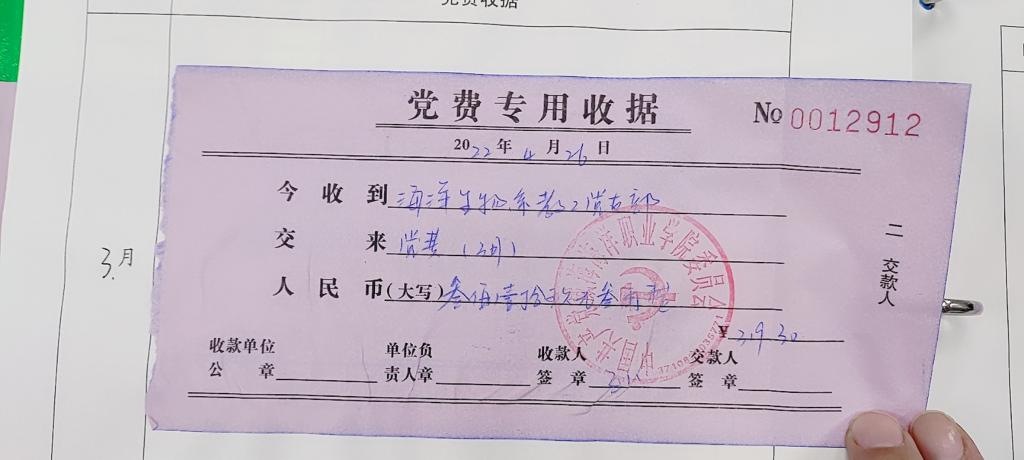 党费收据
3月
党费专用收据
№ 0012912
2022年4月26日
今收到 海洋生物系教工党支部
交来 党费(3月)
人民币(大写) 叁佰壹拾玖元叁角整
¥ 319.30
收款单位公章
单位负责人章
收款人签章
交款人签章
二 交款人
职业学院委员会
中国共产党